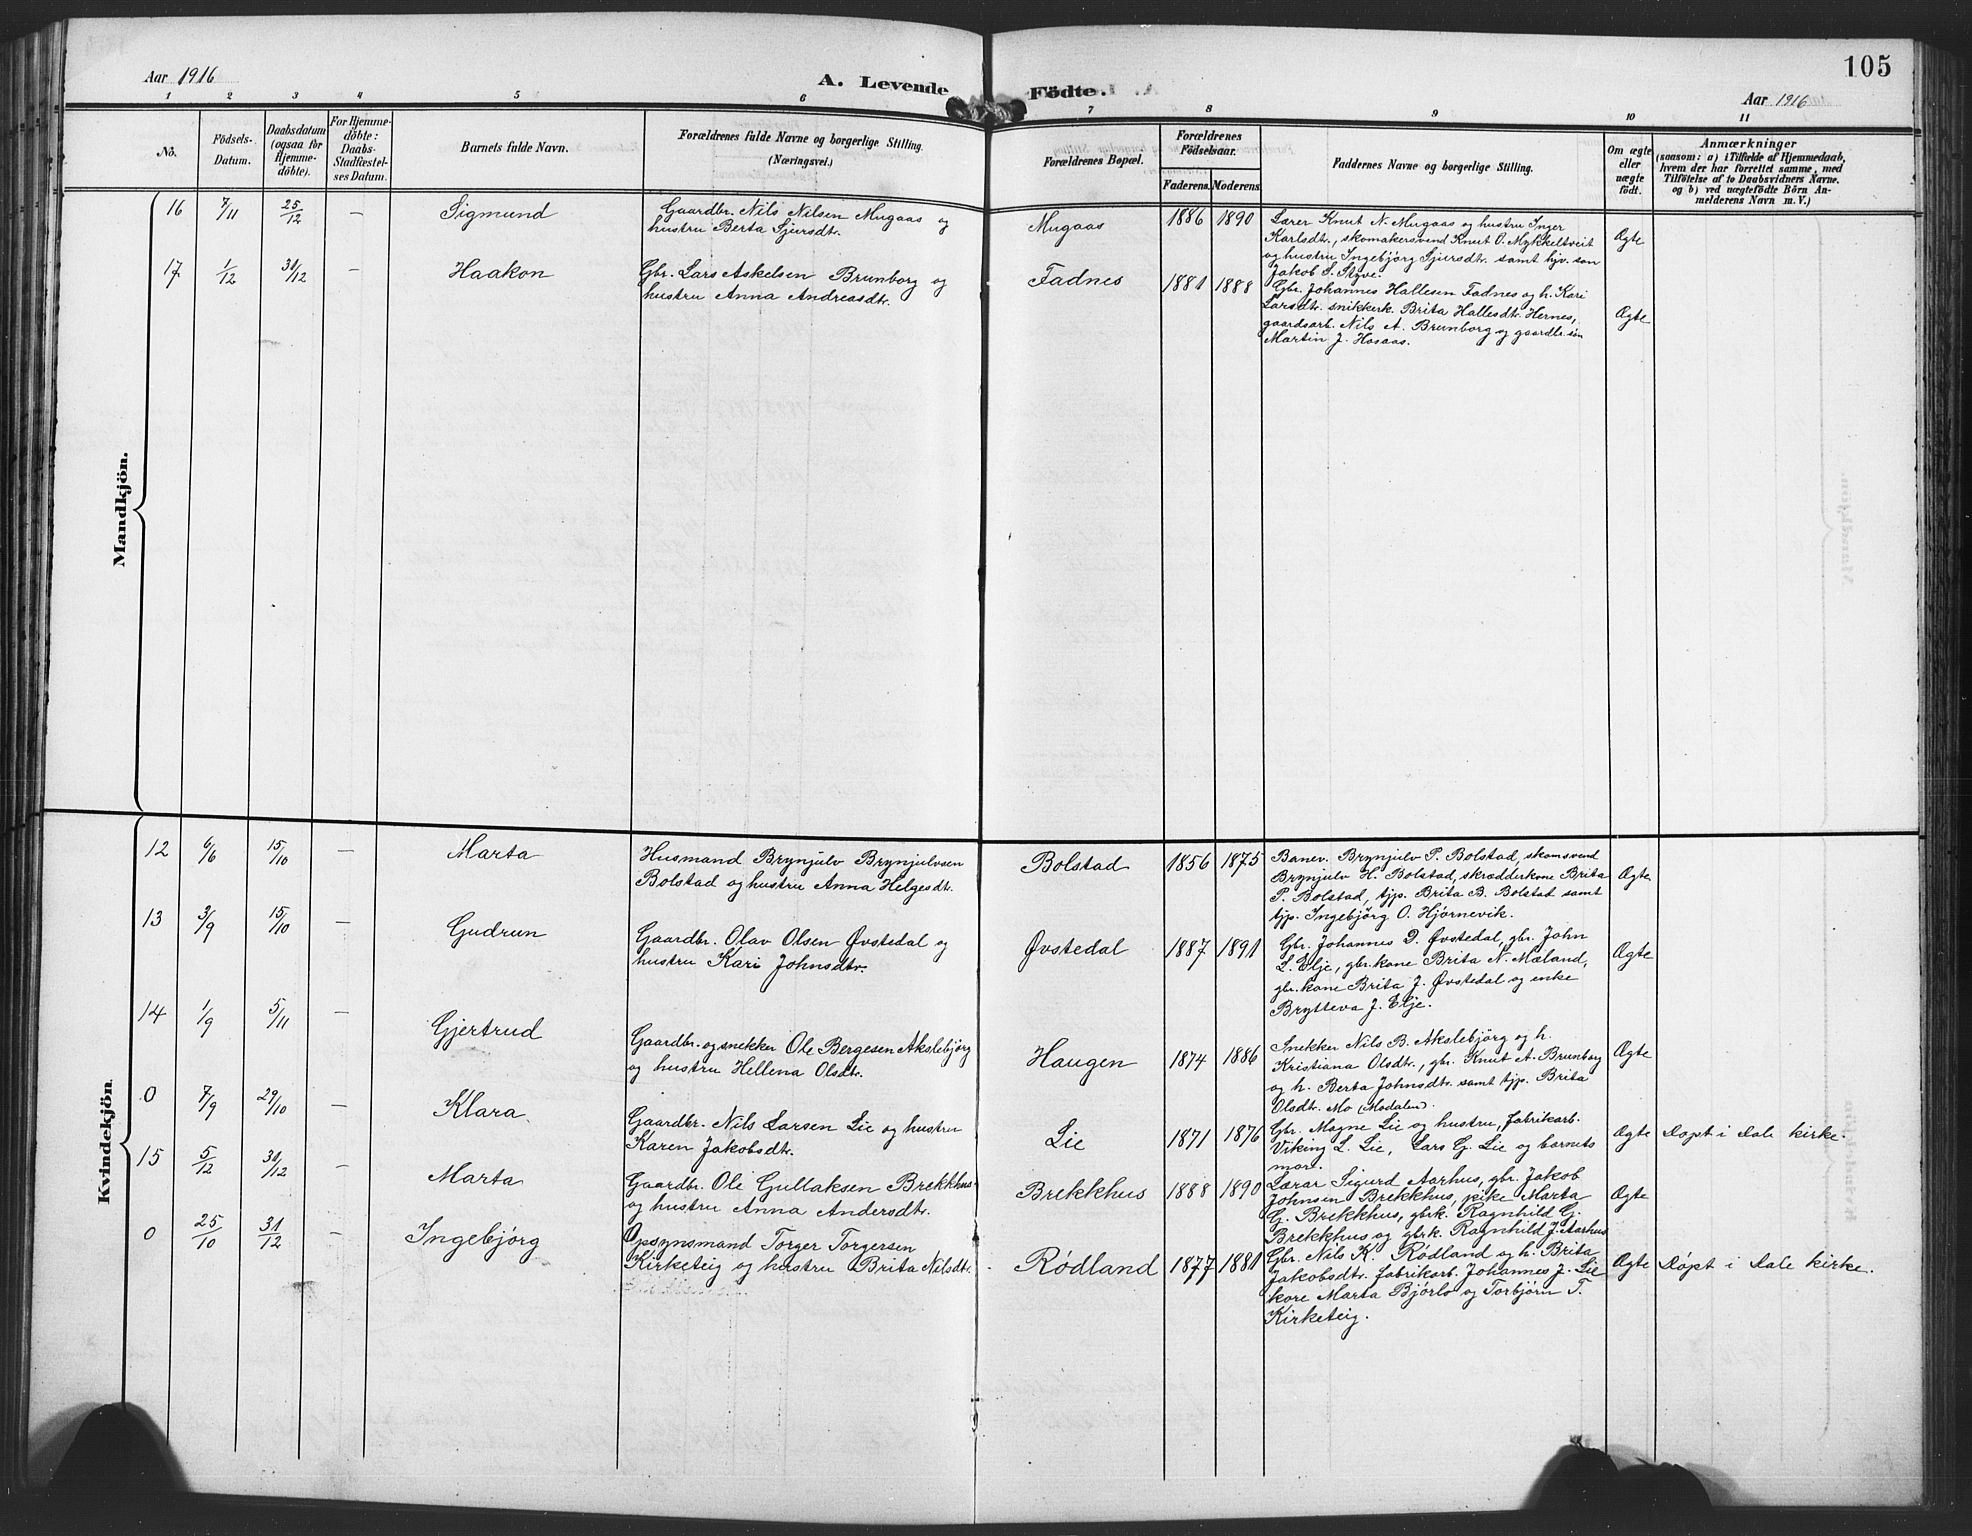 Aar 1916
A. Levende
Födte.
Aar 1916
105
1 2 3 4 5 6 7 8 9 10 11
No.
Födsels-
Datum.
Daabsdatum
(ogsaa for
Hjemme-
döbte).
For Hjemme-
döbte:
Daabs-
Stadfæstel-
ses Datum.
Barnets fulde Navn.
Forældrenes fulde Navne og borgerlige Stilling.
(Næringsvei.)
Forældrenes Bopæl.
Forældrenes
Födselsaar.
Faderens. Moderens.
Faddernes Navne og borgerlige Stilling.
Om ægte
eller
uægte
födt.
Anmærkninger
(saasom: a) i Tilfælde af Hjemmedaab,
hvem der har forrettet samme, med
Tilföielse af to Daabsvidners Navne.
og b) ved uægtefödte Börn An-
melderens Navn m. V.)
Mandkjön.
16 7/11 25/12 — Sigmund
Gaardbr. Nils Nilsen Mugaas og
hustru Berta Sjursdtr.
Mugaas 1886 1890
Lærer Knut N. Mugaas og hustru Inger
Karlsdtr., skomakersvend Knut O. Mykkeltveit
og hustru Ingebjörg Sjursdtr. samt hjv. søn
Jakob S. Styve.
Ægte
17 1/12 31/12 — Haakon
Gbr. Lars Askelsen Brunborg og
hustru Anna Andreasdtr.
Fadnes 1881 1888
Gbr. Johannes Hallesen Fadnes og h. Kari
Larsdtr. snikkerk. Brita Hallesdtr. Hernes,
gaardsarb. Nils A. Brunborg og gaardbr. søn
Martin J. Hosaas.
Ægte
Kvindekjön.
12 6/6 15/10 — Marta
Husmand Brynjulv Brynjulvsen
Bolstad og hustru Anna Helgesdtr.
Bolstad 1856 1875
Banev. Brynjulv P. Bolstad, skomsvend
Brynjulv H. Bolstad, skrædderkone Brita
P. Bolstad, tjp. Brita B. Bolstad samt
tjp. Ingebjörg O. Hjörnevik.
Ægte
13 3/9 15/10 — Gudrun
Gaardbr. Olav Olsen Øvstedal og
hustru Kari Johnsdtr.
Øvstedal 1887 1891
Gbr. Johannes D. Øvstedal, gbr. John
L. Elje, gbr. kone Brita N. Mæland,
gbr. kone Brita J. Øvstedal og enke
Brytteva J. Elje.
Ægte
14 1/9 5/11 — Gjertrud
Gaardbr. og snekker Ole Bergesen Akslebjörg
og hustru Hellena Olsdtr.
Haugen 1874 1886
Snekker Nils B. Akslebjörg og h.
Kristiana Olsdtr., gbr. Knut A. Brunborg
og h. Berta Johnsdtr. samt tjp. Brita
Olsdtr. Mo (Modalen).
Ægte
0 7/9 29/10 — Klara
Gaardbr. Nils Larsen Lie og hustru
Karen Jakobsdtr.
Lie 1871 1876
Gbr. Magne Lie og hustru, fabrikarb.
Viking L. Lie, Lars G. Lie og barnets
mor.
Ægte Døpt i Dale kirke.
15 5/12 31/12 — Marta
Gaardbr. Ole Gullaksen Brekkhus
og hustru Anna Andersdtr.
Brekkhus 1888 1890
Lærar Sigurd Aarhus, gbr. Jakob
Johnsen Brekkhus, pike Marta
G. Brekkhus, gbrk. Ragnhild G.
Brekkhus og gbrk. Ragnhild J. Aarhus
Ægte
0 25/10 31/12 — Ingebjörg
Opsynsmand Torger Torgersen
Kirketeig og hustru Brita Nilsdtr.
Rødland 1877 1881
Gbr. Nils K. Rödland og h. Brita
Jakobsdtr. fabrikarb. Johannes J. Lie
kore Marta Bjórlo og Torbjörn T.
Kirketeig.
Ægte Döpt i Dale kirke.